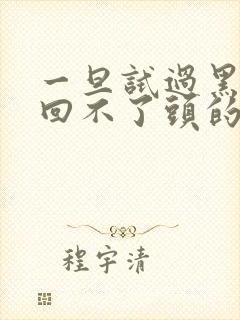 一旦試過黑
回不了頭的
程宇清